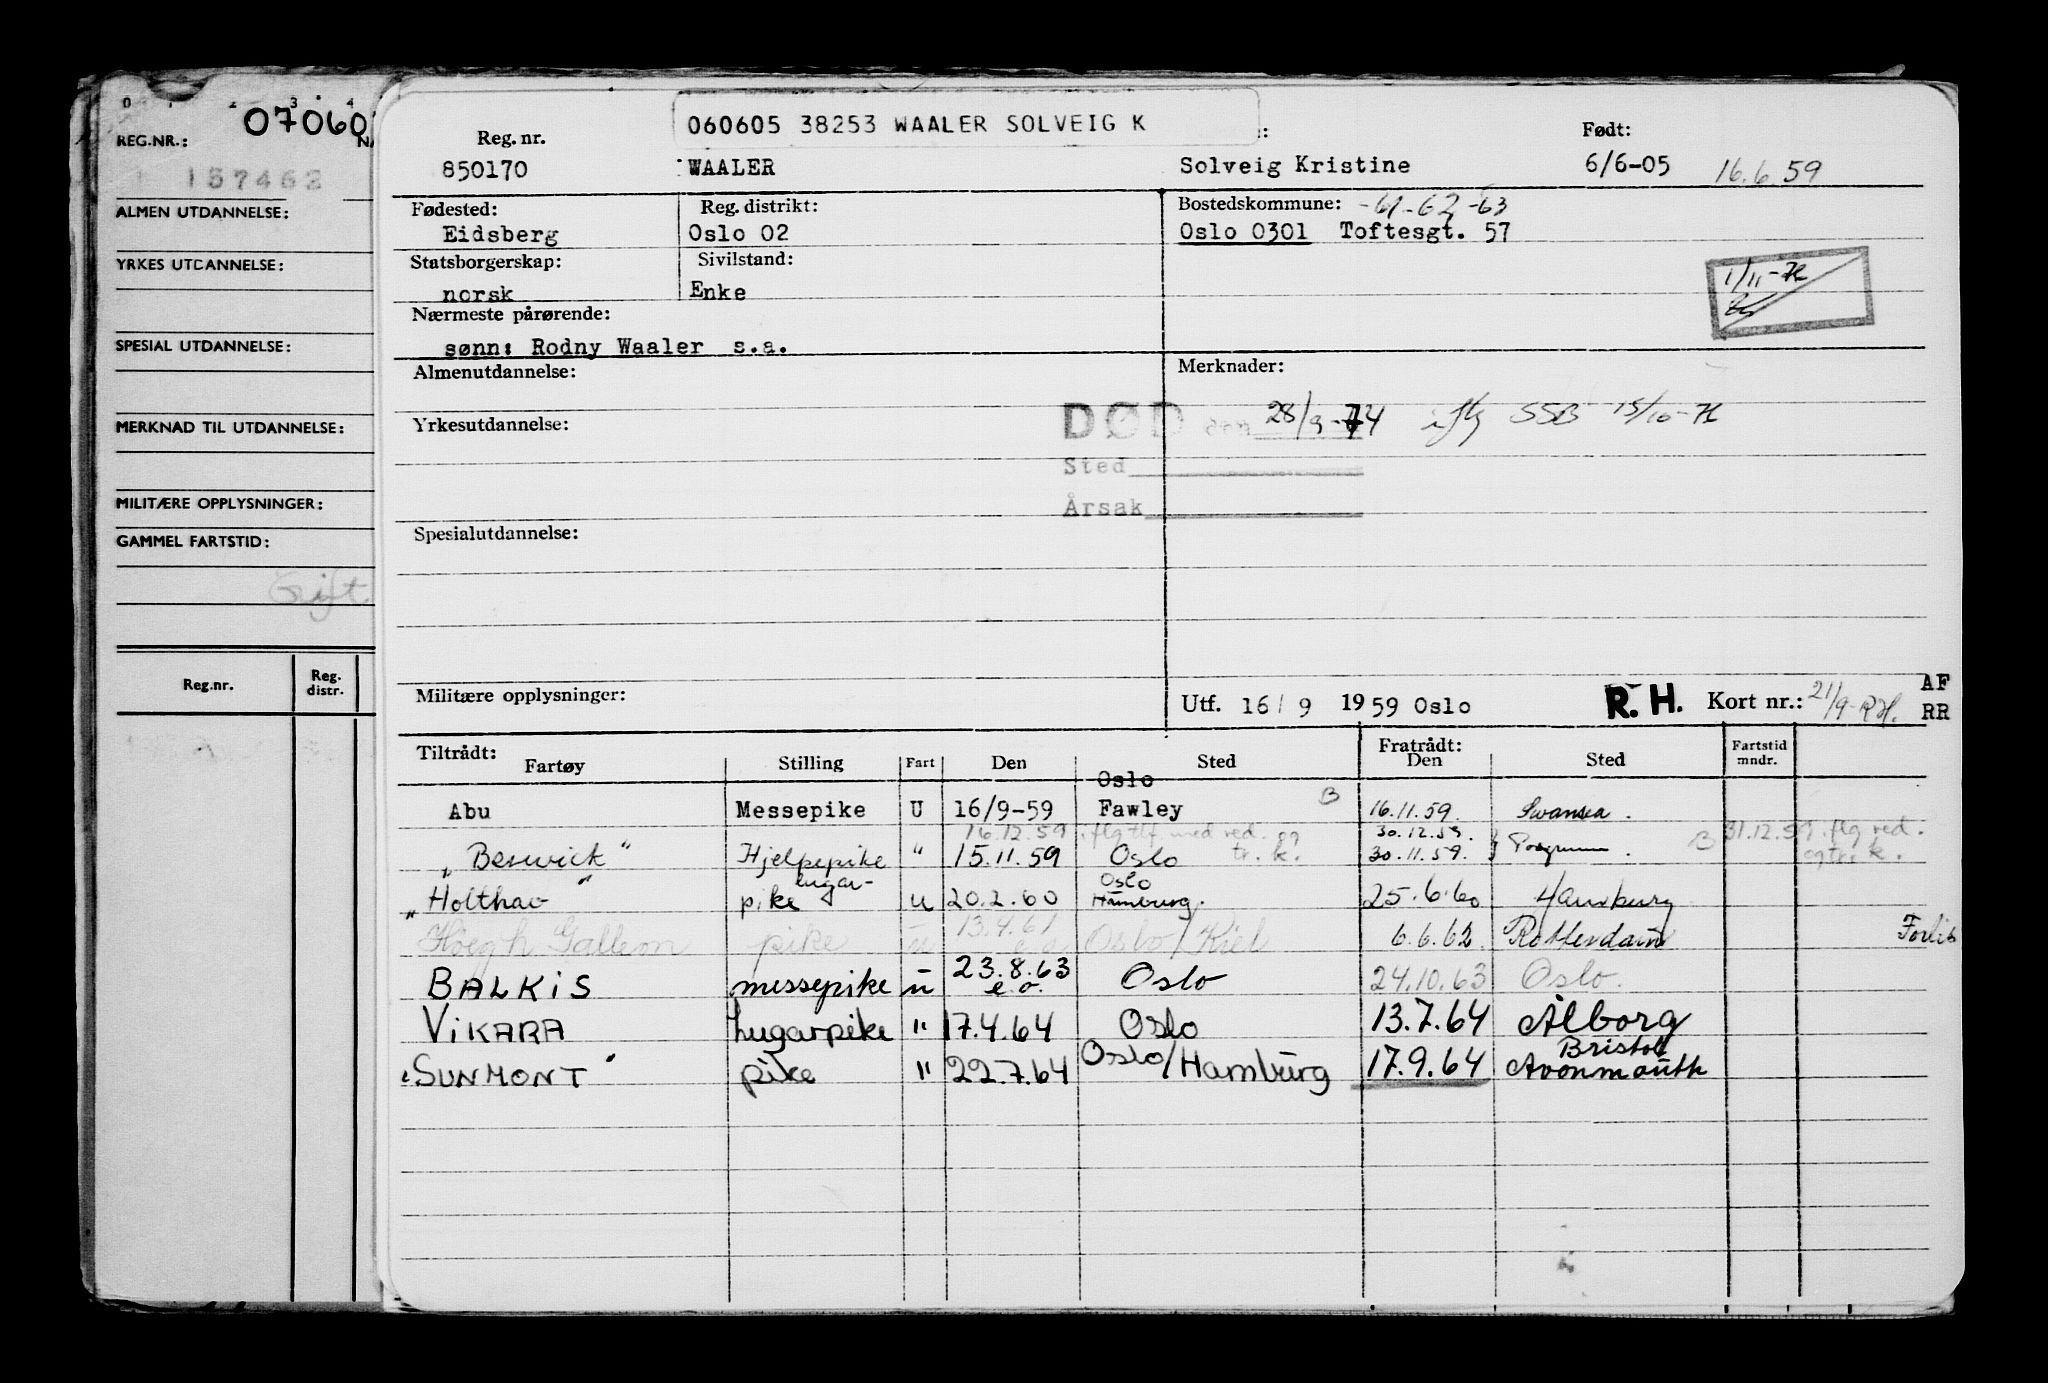 0 1 2 3 4
07060
REG.NR.:
157462
ALMEN UTDANNELSE:
YRKES UTDANNELSE:
SPESIAL UTDANNELSE:
MERKNAD TIL UTDANNELSE:
MILITÆRE OPPLYSNINGER:
GAMMEL FARTSTID:
Gift
Reg.nr. Reg. distr.
060605 38253 WAALER SOLVEIG K
Reg. nr. Født:
850170 WAALER Solveig Kristine 6/6-05 16.6.59
Fødested: Reg. distrikt: Bostedskommune: -61-62-63
Eidsberg Oslo 02 Oslo 0301 Toftesgt. 57
Statsborgerskap: Sivilstand:
norsk Enke
1/11-74
Nærmeste pårørende:
sønn: Rodny Waaler s.a.
Almenutdannelse: Merknader:
DØD den 28/9-74 iflg SSB 15/10-74
Yrkesutdannelse:
Sted
Årsak
Spesialutdannelse:
Militære opplysninger: Utf. 16/9 1959 Oslo R.H. Kort nr.: 21/9-RH. AF
RR
Tiltrådt: Fratrådt:
Fartøy Stilling Fart Den Sted Den Sted Fartstid mndr.
Oslo
Abu Messepike U 16/9-59 Fawley B 16.11.59. Swansea.
16.12.59 iflg tlf med red. og tr. k. 30.12.59. 31.12.59 iflg red. og tr. k.
"Berwick" Hjelpepike " 15.11.59 Oslo 30.11.59. Porsgrunn. B
lugar- Oslo
"Holthav" pike u 20.2.60 Hamburg. 25.6.60 Hamburg
13.4.61
Höegh Galleon pike u e.o. Oslo/Kiel 6.6.62 Rotterdam
BALKIS messepike u 23.8.63 e.o. Oslo 24.10.63 Oslo.
VIKARA Lugarpike " 17.4.64 Oslo 13.7.64 Ålborg
Bristol
"SUNMONT" pike " 22.7.64 Oslo/Hamburg 17.9.64 Avonmouth